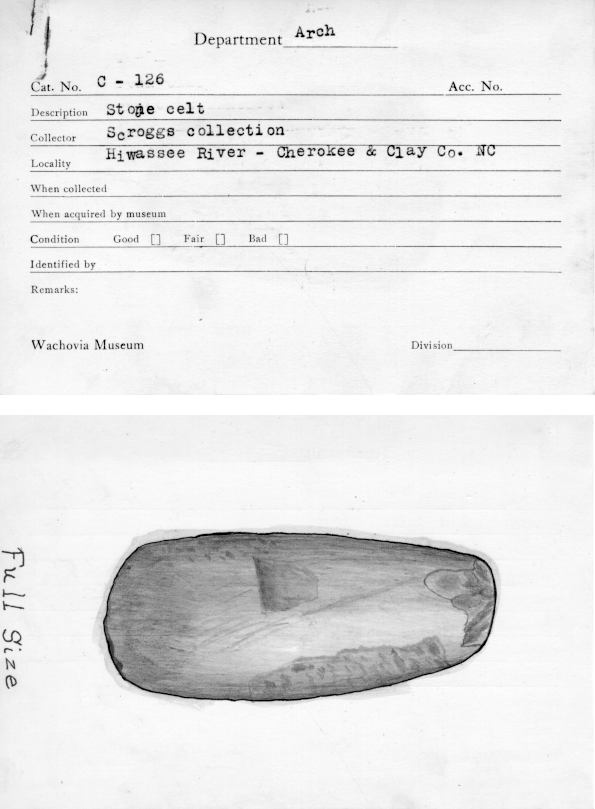 Department Arch
Cat. No. C - 126 Acc. No.
Description Stone celt
Collector Scroggs collection
Locality Hiwassee River - Cherokee & Clay Co. NC
When collected
When acquired by museum
Condition Good [] Fair [] Bad []
Identified by
Remarks:
Wachovia Museum Division
Full Size